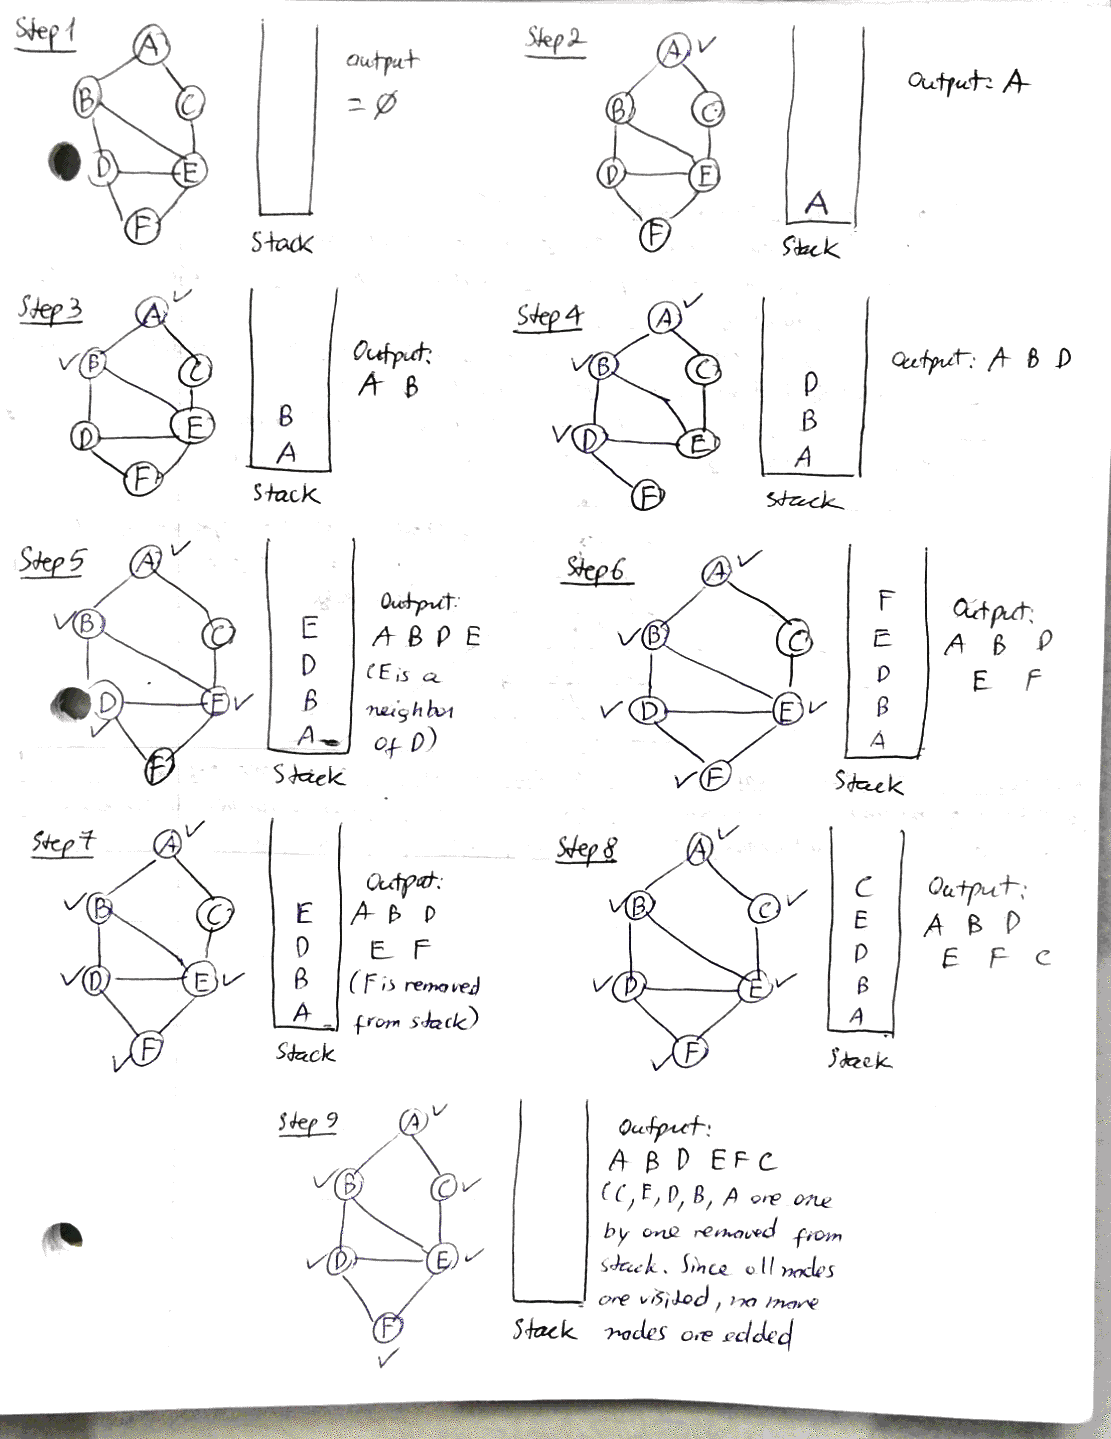 Step 1
A
B
C
D
E
F
Stack
output
= ∅
Step 2
A ✓
B
C
D
E
F
A
Stack
Output: A
Step 3
A ✓
✓ B
C
D
E
F
B
A
Stack
Output:
A B
Step 4
A ✓
✓ B
C
✓ D
E
F
D
B
A
Stack
Output: A B D
Step 5
A ✓
✓ B
C
D
E ✓
✓
F
E
D
B
A
Stack
Output:
A B D E
(E is a
neighbor
of D)
Step 6
A ✓
✓ B
C
✓ D
E ✓
✓ F
F
E
D
B
A
Stack
Output:
A B D
E F
Step 7
A ✓
✓ B
C
✓ D
E ✓
✓ F
E
D
B
A
Stack
Output:
A B D
E F
(F is removed
from stack)
Step 8
A ✓
✓ B
C ✓
✓ D
E ✓
✓ F
C
E
D
B
A
Stack
Output:
A B D
E F C
Step 9
A ✓
✓ B
C ✓
✓ D
E ✓
F
✓
Stack
Output:
A B D E F C
(C, E, D, B, A are one
by one removed from
stack. Since all nodes
are visited, no more
nodes are added